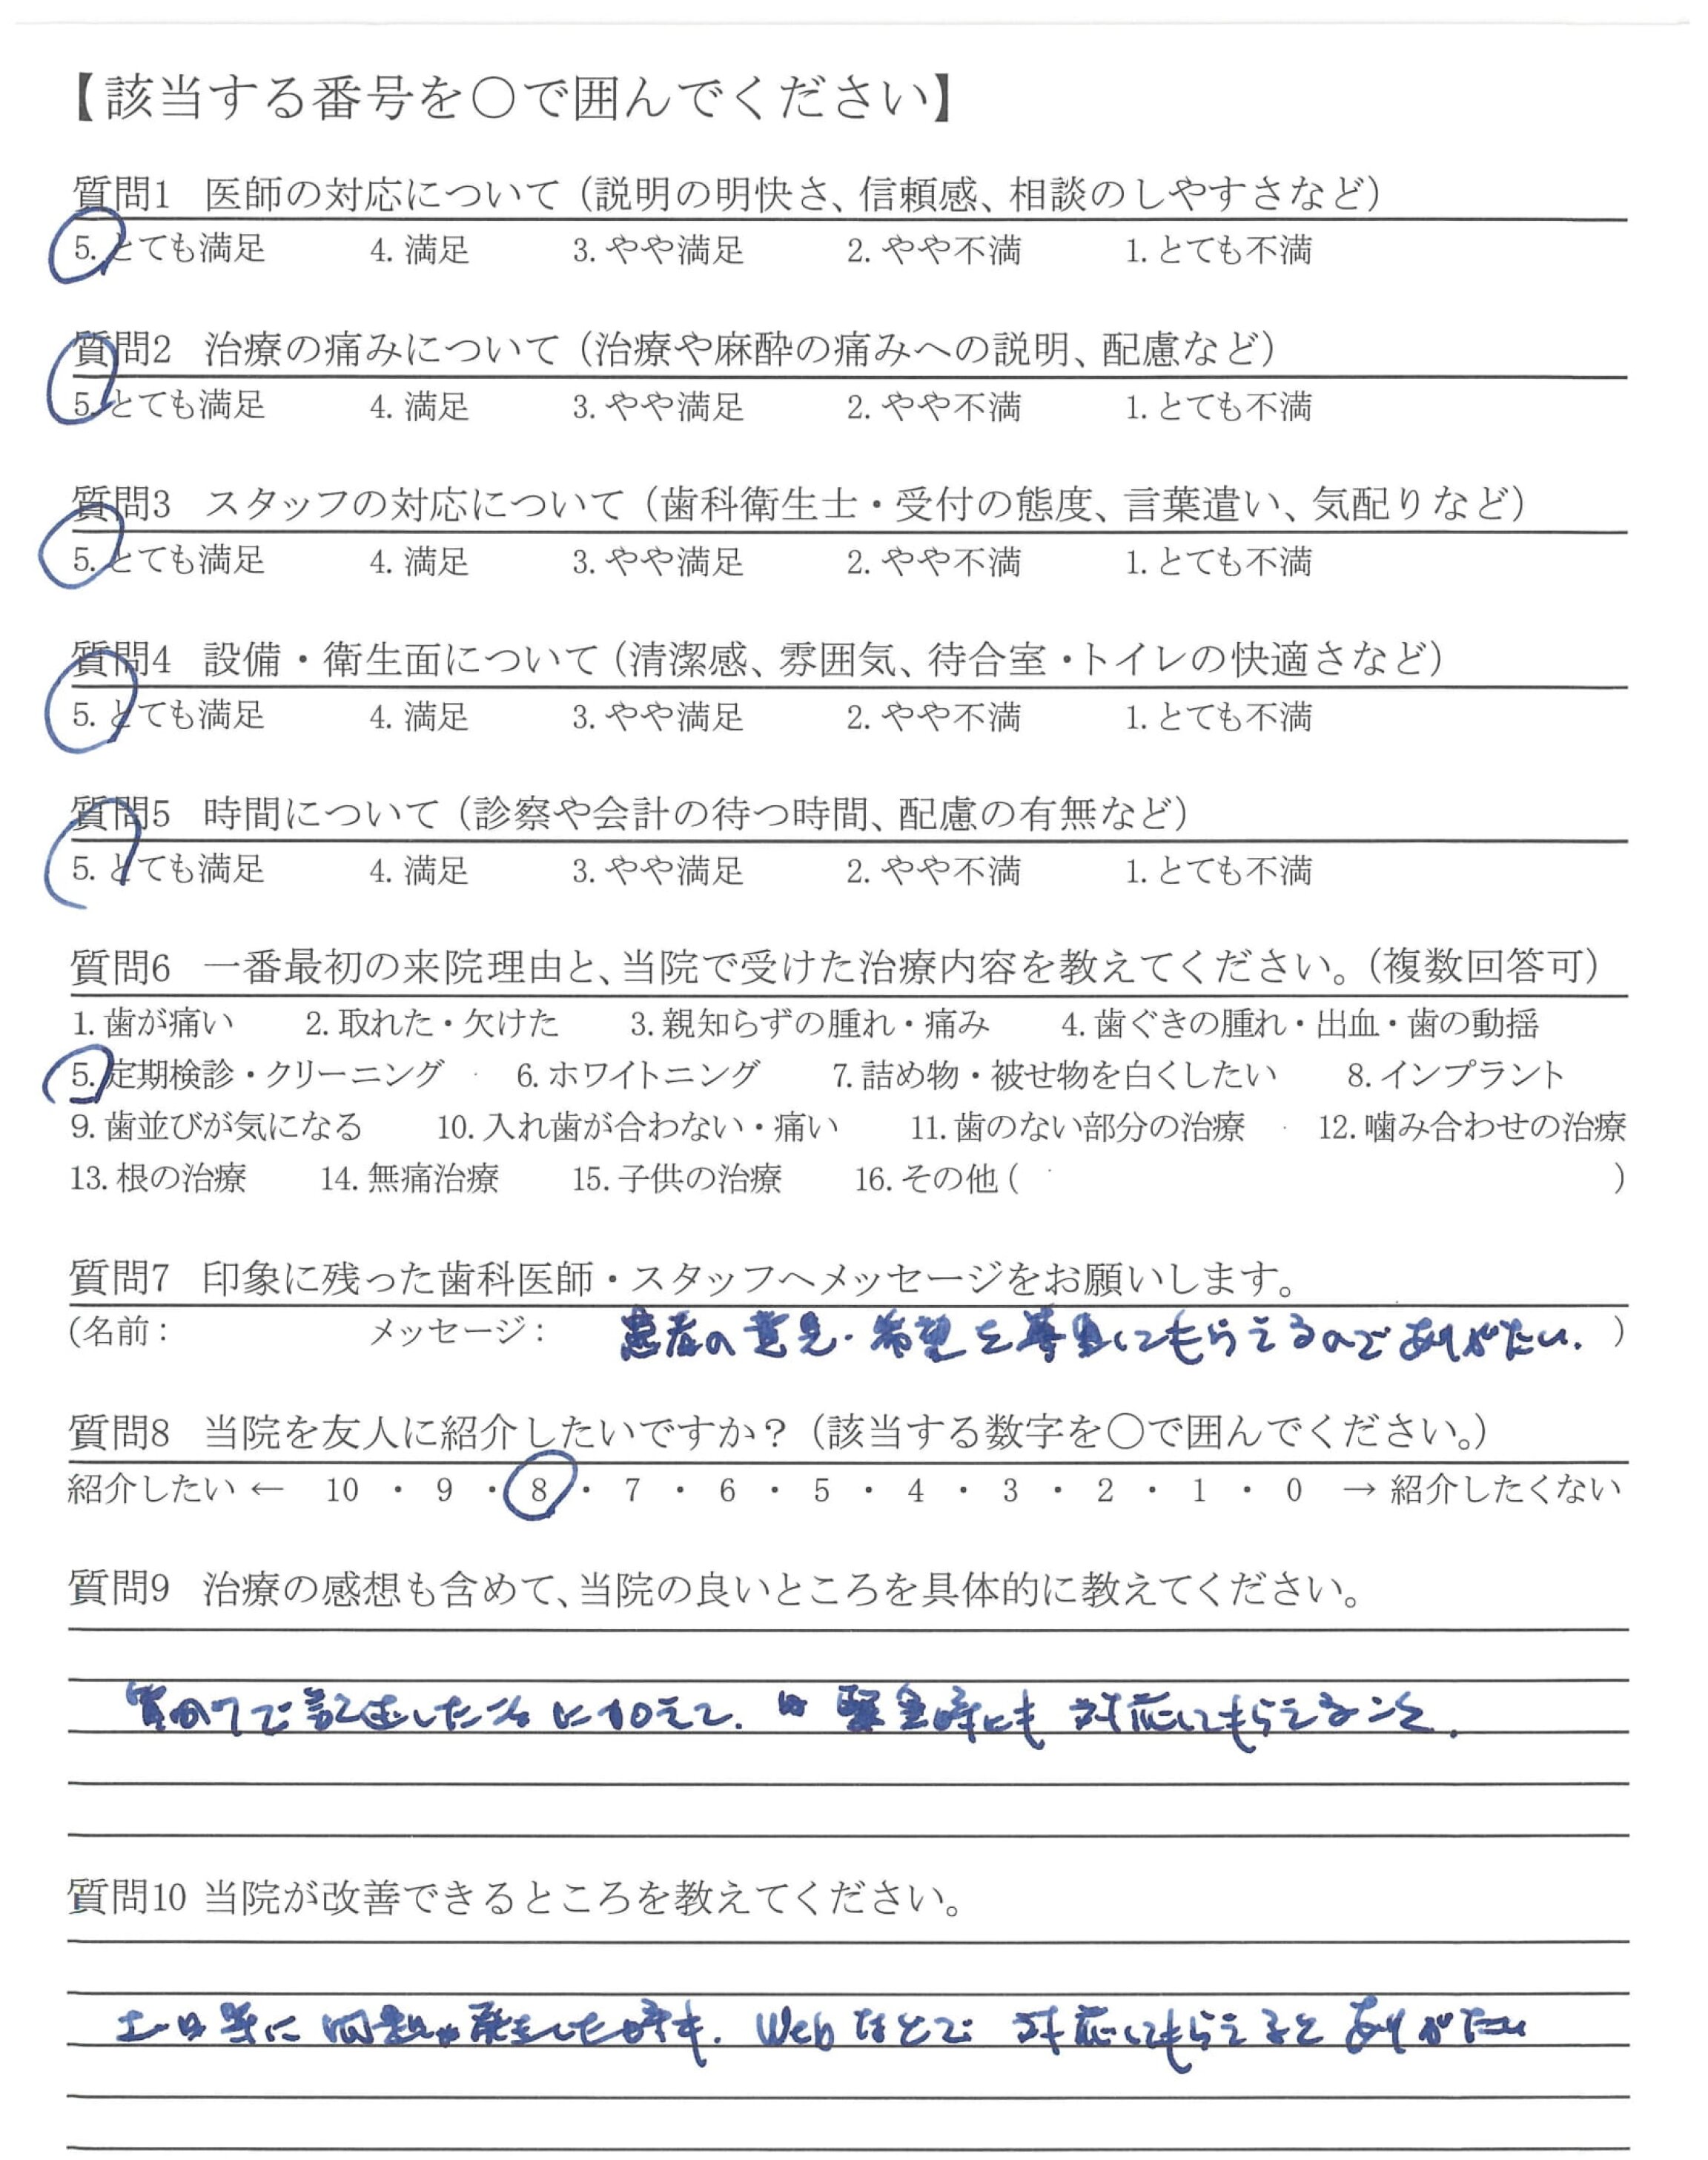 【該当する番号を〇で囲んでください】
質問1 医師の対応について（説明の明快さ、信頼感、相談のしやすさなど）
5. とても満足 4. 満足 3. やや満足 2. やや不満 1. とても不満
質問2 治療の痛みについて（治療や麻酔の痛みへの説明、配慮など）
5. とても満足 4. 満足 3. やや満足 2. やや不満 1. とても不満
質問3 スタッフの対応について（歯科衛生士・受付の態度、言葉遣い、気配りなど）
5. とても満足 4. 満足 3. やや満足 2. やや不満 1. とても不満
質問4 設備・衛生面について（清潔感、雰囲気、待合室・トイレの快適さなど）
5. とても満足 4. 満足 3. やや満足 2. やや不満 1. とても不満
質問5 時間について（診察や会計の待つ時間、配慮の有無など）
5. とても満足 4. 満足 3. やや満足 2. やや不満 1. とても不満
質問6 一番最初の来院理由と、当院で受けた治療内容を教えてください。（複数回答可）
1. 歯が痛い 2. 取れた・欠けた 3. 親知らずの腫れ・痛み 4. 歯ぐきの腫れ・出血・歯の動揺
5. 定期検診・クリーニング 6. ホワイトニング 7. 詰め物・被せ物を白くしたい 8. インプラント
9. 歯並びが気になる 10. 入れ歯が合わない・痛い 11. 歯のない部分の治療 12. 噛み合わせの治療
13. 根の治療 14. 無痛治療 15. 子供の治療 16. その他 ( )
質問7 印象に残った歯科医師・スタッフへメッセージをお願いします。
（名前： メッセージ： 患者の意見・希望を尊重してもらえるのでありがたい。）
質問8 当院を友人に紹介したいですか？（該当する数字を〇で囲んでください。）
紹介したい ← 10 ・ 9 ・ 8 ・ 7 ・ 6 ・ 5 ・ 4 ・ 3 ・ 2 ・ 1 ・ 0 → 紹介したくない
質問9 治療の感想も含めて、当院の良いところを具体的に教えてください。
質問7で記述したことに加えて、緊急時にも対応してもらえること。
質問10 当院が改善できるところを教えてください。
土・日等に問題が発生した時も、Webなどで対応してもらえるとありがたい